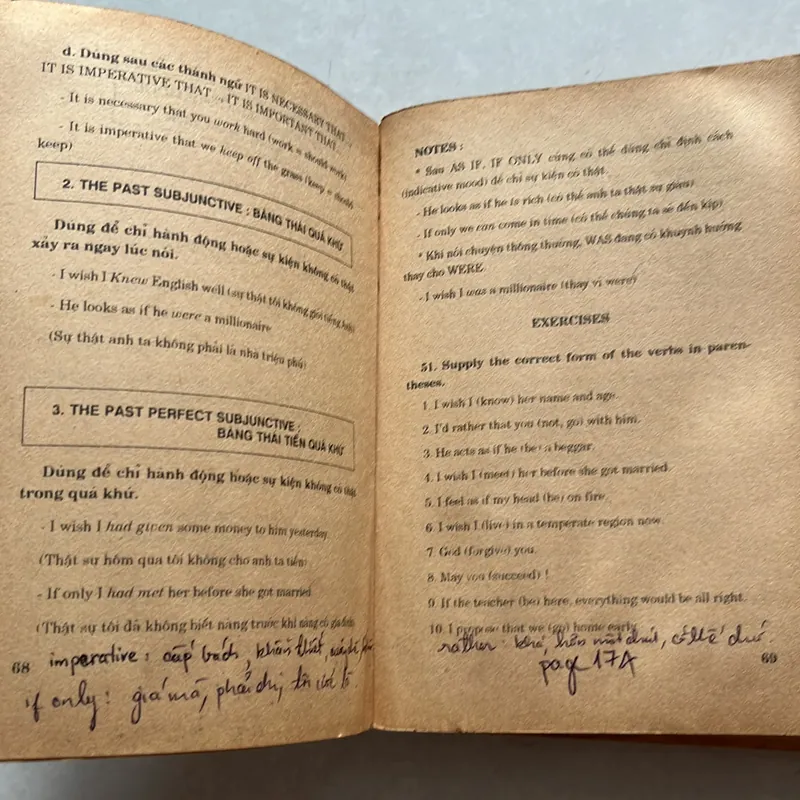 d. Dùng sau các thành ngữ IT IS NECESSARY THAT ...,
IT IS IMPERATIVE THAT ..., IT IS IMPORTANT THAT
- It is necessary that you work hard (work = should work)
- It is imperative that we keep off the grass (keep = should
keep)
2. THE PAST SUBJUNCTIVE : BÀNG THÁI QUÁ KHỨ
Dùng để chỉ hành động hoặc sự kiện không có thật
xẩy ra ngay lúc nói.
- I wish I Knew English well (sự thật tôi không giỏi tiếng Anh)
- He looks as if he were a millionaire
(Sự thật anh ta không phải là nhà triệu phú)
3. THE PAST PERFECT SUBJUNCTIVE :
BÀNG THÁI TIỀN QUÁ KHỨ
Dùng để chỉ hành động hoặc sự kiện không có thật
trong quá khứ.
- I wish I had given some money to him yesterday.
(Thật sự hôm qua tôi không cho anh ta tiền)
- If only I had met her before she got married.
(Thật sự tôi đã không biết nàng trước khi nàng có gia đình)
68 imperative : cấp bách, khẩn thiết,
if only : giá mà, phải chi,
NOTES :
* Sau AS IF, IF ONLY cũng có thể dùng chỉ định cách
(indicative mood) để chỉ sự kiện có thật.
- He looks as if he is rich (có thể anh ta thật sự giàu)
- If only we can come in time (có thể chúng ta sẽ đến kịp)
* Khi nói chuyện thông thường, WAS đang có khuynh hướng
thay cho WERE.
- I wish I was a millionaire (thay vì were)
EXERCISES
51. Supply the correct form of the verbs in paren-
theses.
1. I wish I (know) her name and age.
2. I'd rather that you (not, go) with him.
3. He acts as if he (be) a beggar.
4. I wish I (meet) her before she got married.
5. I feel as if my head (be) on fire.
6. I wish I (live) in a temperate region now.
7. God (forgive) you.
8. May you (succeed) !
9. If the teacher (be) here, everything would be all right.
10. I propose that we (go) home early.
rather : khá, hơn một chút, có thể chứ
page 17A
69